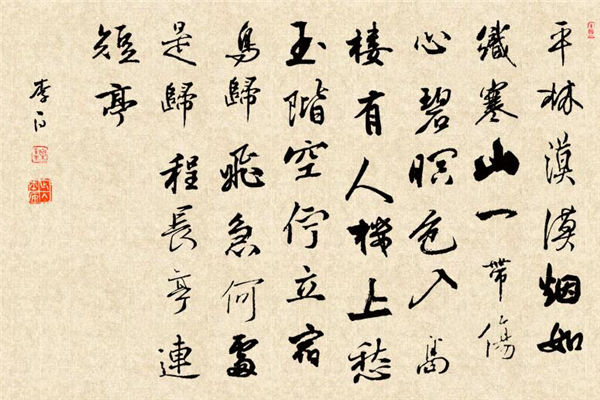 平林漠漠烟如
織寒山一帶傷
心碧暝色入高
楼有人樓上愁
玉階空佇立宿
鳥歸飛急何處
是歸程長亭連
短亭
李白